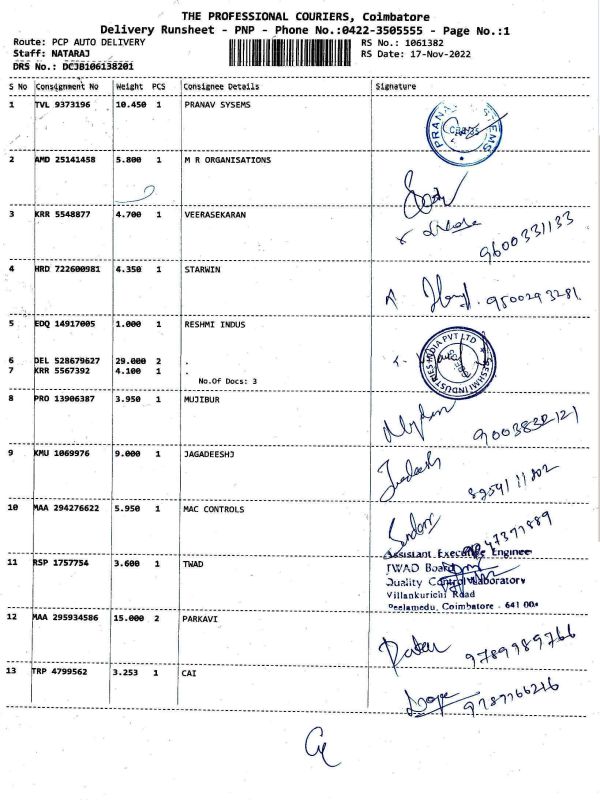 THE PROFESSIONAL COURIERS, Coimbatore
Delivery Runsheet - PNP - Phone No.:0422-3505555 - Page No.:1
Route: PCP AUTO DELIVERY RS No.: 1061382
Staff: NATARAJ RS Date: 17-Nov-2022
DRS No.: DCJB106138201
S No Consignment No Weight PCS Consignee Details Signature
1 TVL 9373196 10.450 1 PRANAV SYSEMS
2 AMD 25141458 5.800 1 M R ORGANISATIONS
3 KRR 5548877 4.700 1 VEERASEKARAN
9600331133
4 HRD 722600981 4.350 1 STARWIN
9500293281
5 EDQ 14917005 1.000 1 RESHMI INDUS
RESHMI INDUSTRIES INDIA PVT LTD
6 DEL 528679627 29.000 2 .
7 KRR 5567392 4.100 1 .
No.Of Docs: 3
8 PRO 13906387 3.950 1 MUJIBUR
9 KMU 1069976 9.000 1 JAGADEESHJ
Jagadeesh
10 MAA 294276622 5.950 1 MAC CONTROLS
Assistant Executive Engineer
11 RSP 1757754 3.600 1 TWAD
TWAD Board
Quality Control Laboratory
Villankurichi Road
Peelamedu, Coimbatore - 641 004
12 MAA 295934586 15.000 2 PARKAVI
9789989766
13 TRP 4799562 3.253 1 CAI